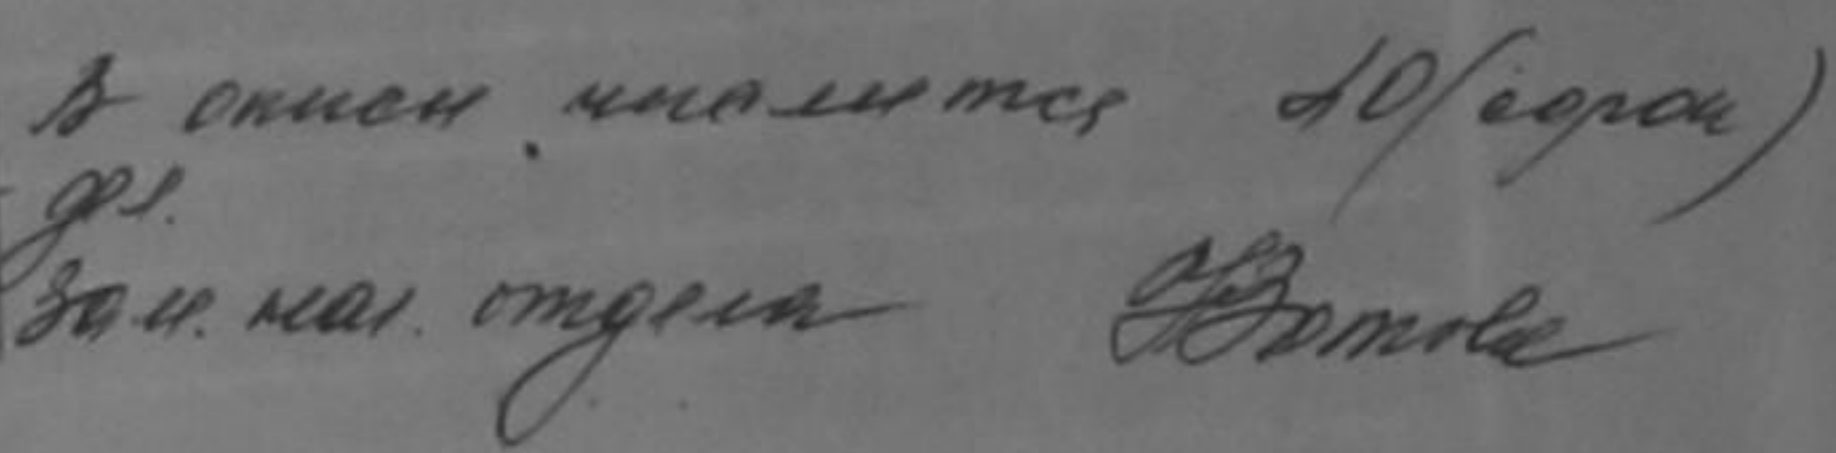 В описи числится 40 (сорок)
дел.
Зам. нач. отдела Зотова